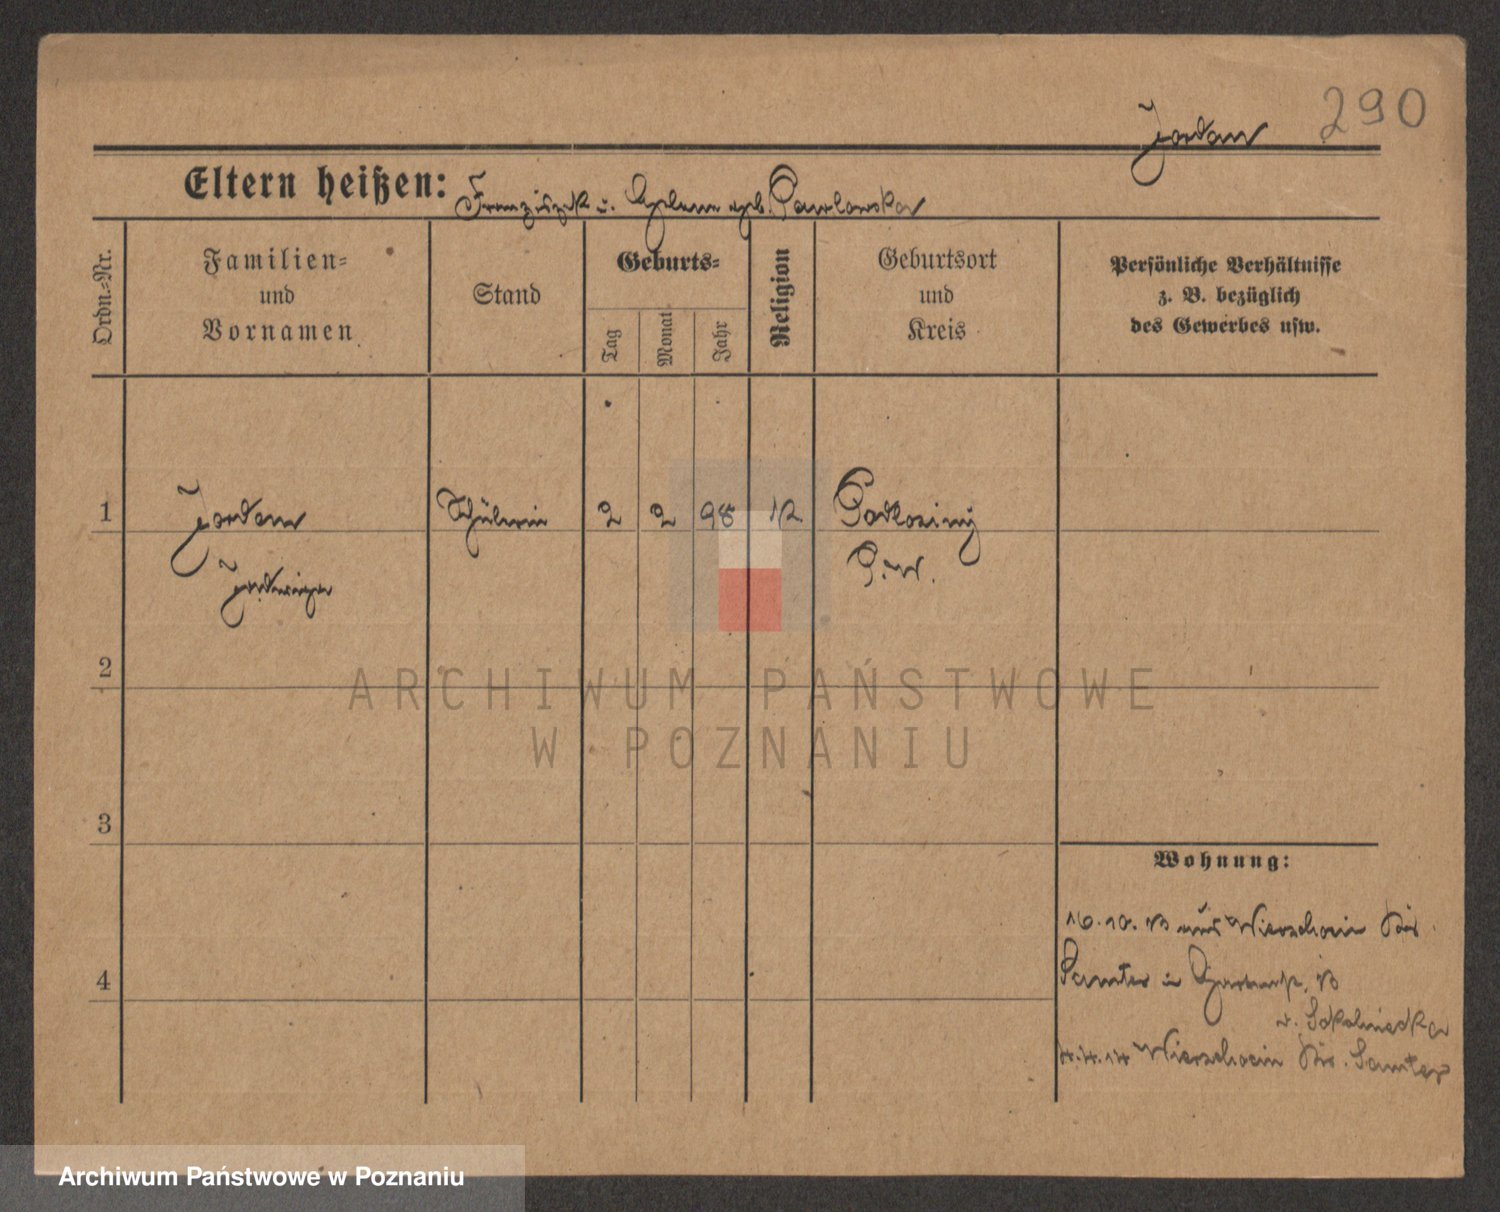 290
Jordan
Eltern heißen: Franziszek u. Helene geb. Pawlowska
Ordn.-Nr.
Familien-
und
Vornamen
Stand
Geburts-
Tag
Monat
Jahr
Religion
Geburtsort
und
Kreis
Persönliche Verhältnisse
z. B. bezüglich
des Gewerbes usw.
1
Jordan
Schülerin
2
2
98
Jadwiga
2
ARCHIWUM PAŃSTWOWE
W POZNANIU
3
Wohnung:
16.10.13 aus Wierzchocin Krs.
4
Samter
13
Wierzchocin Krs. Samter
Archiwum Państwowe w Poznaniu